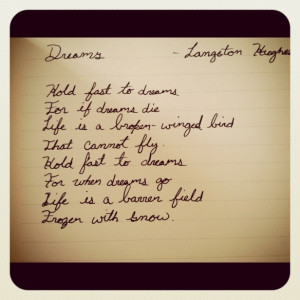 Dreams - Langston Hughes
Hold fast to dreams
For if dreams die
Life is a broken-winged bird
That cannot fly.
Hold fast to dreams
For when dreams go
Life is a barren field
Frozen with snow.